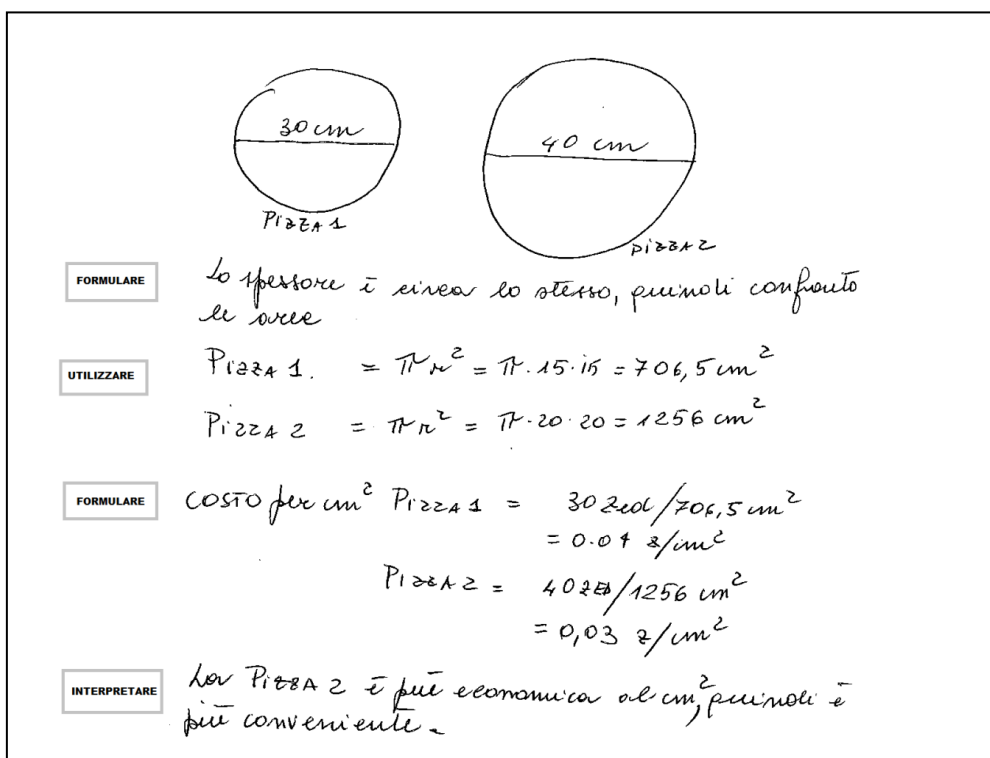 30 cm
40 cm
PizzA 1
pizzA 2
FORMULARE
Lo spessore è circa lo stesso, quindi confronto
le aree
UTILIZZARE
PizzA 1. = πr² = π·15·15 = 706,5 cm²
PizzA 2 = πr² = π·20·20 = 1256 cm²
FORMULARE
COSTO per cm² PizzA 1 = 30 zed/706,5 cm²
= 0.04 z/cm²
PizzA 2 = 40 zed/1256 cm²
= 0,03 z/cm²
INTERPRETARE
La PizzA 2 è più economica al cm², quindi è
più conveniente.